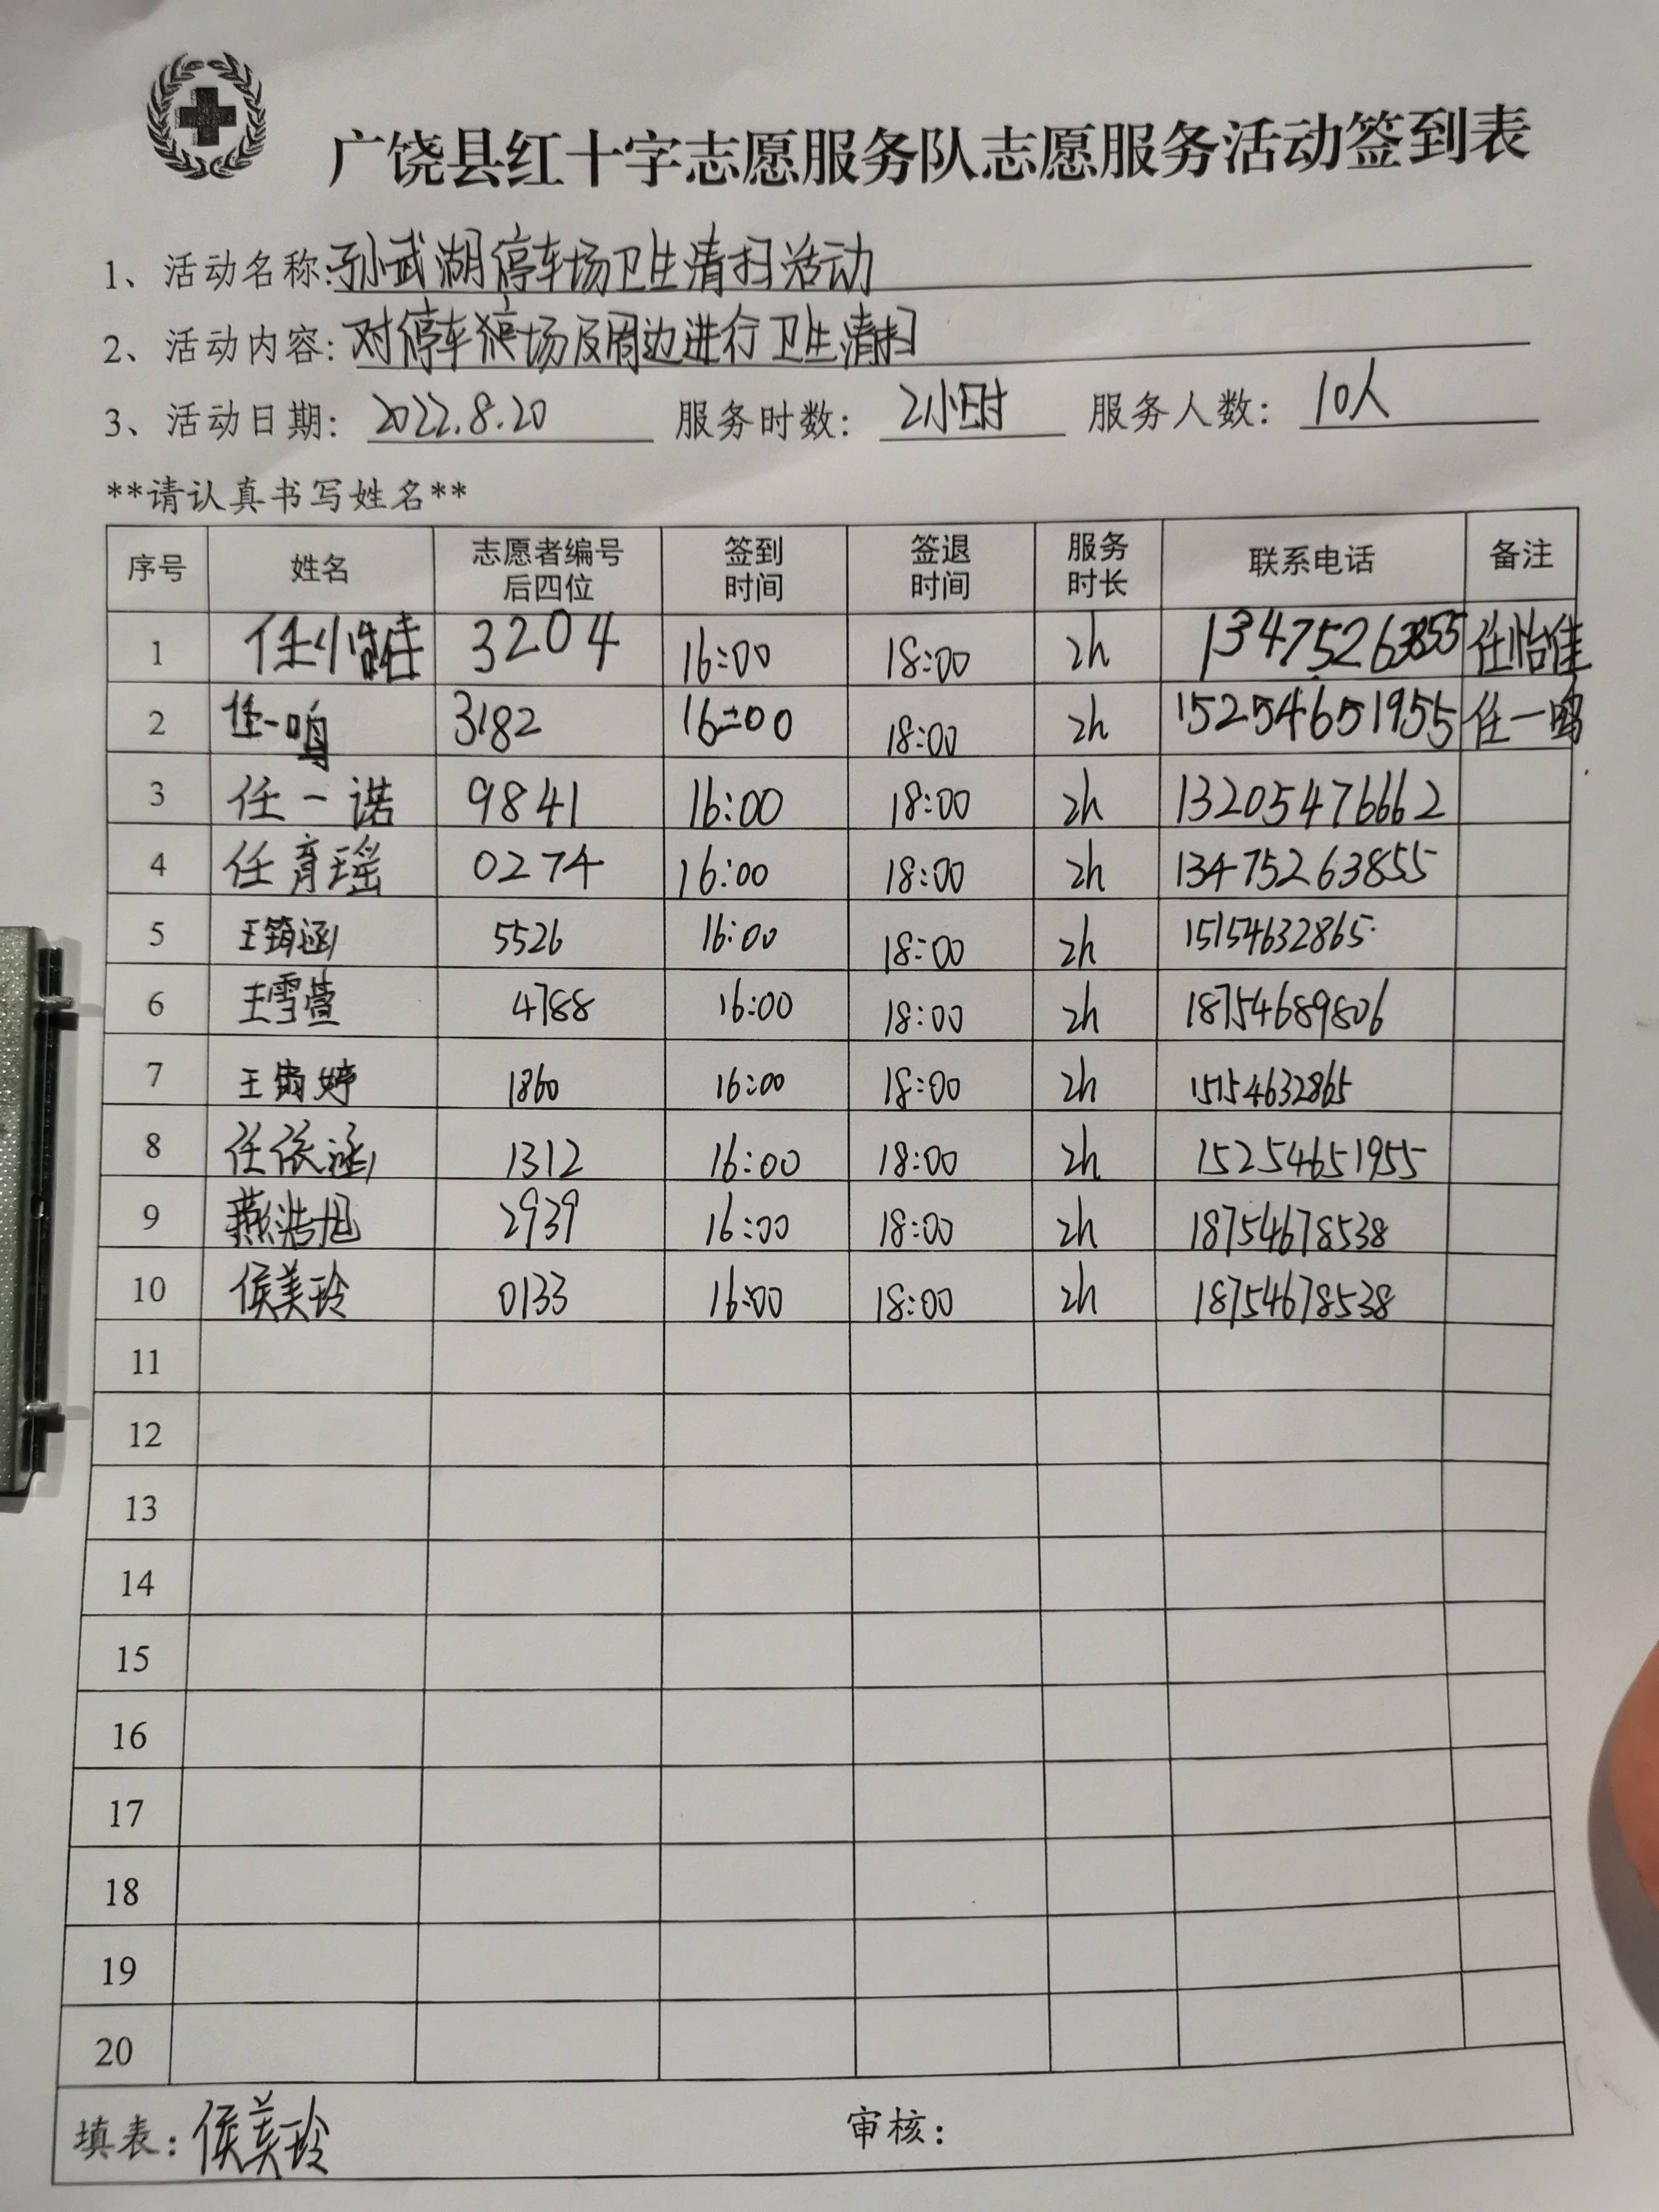 广饶县红十字志愿服务队志愿服务活动签到表
1、活动名称:孙武湖停车场卫生清扫活动
2、活动内容:对停车场及周边进行卫生清扫
3、活动日期: 2022.8.20 服务时数: 2小时 服务人数: 10人
**请认真书写姓名**
序号 姓名 志愿者编号后四位 签到时间 签退时间 服务时长 联系电话 备注
1 任怡佳 3204 16:00 18:00 2h 13475263855 任怡佳
2 任一鸣 3182 16:00 18:00 2h 15254651955 任一鸣
3 任一诺 9841 16:00 18:00 2h 13205476662
4 任育瑶 0274 16:00 18:00 2h 13475263855
5 王 涵 5526 16:00 18:00 2h 15154632865
6 王雪萱 4788 16:00 18:00 2h 18754689806
7 王 婷 1860 16:00 18:00 2h 15154632865
8 任依涵 1312 16:00 18:00 2h 15254651955
9 燕浩旭 2939 16:00 18:00 2h 18754678538
10 侯美玲 0133 16:00 18:00 2h 18754678538
11
12
13
14
15
16
17
18
19
20
填表:侯美玲 审核: